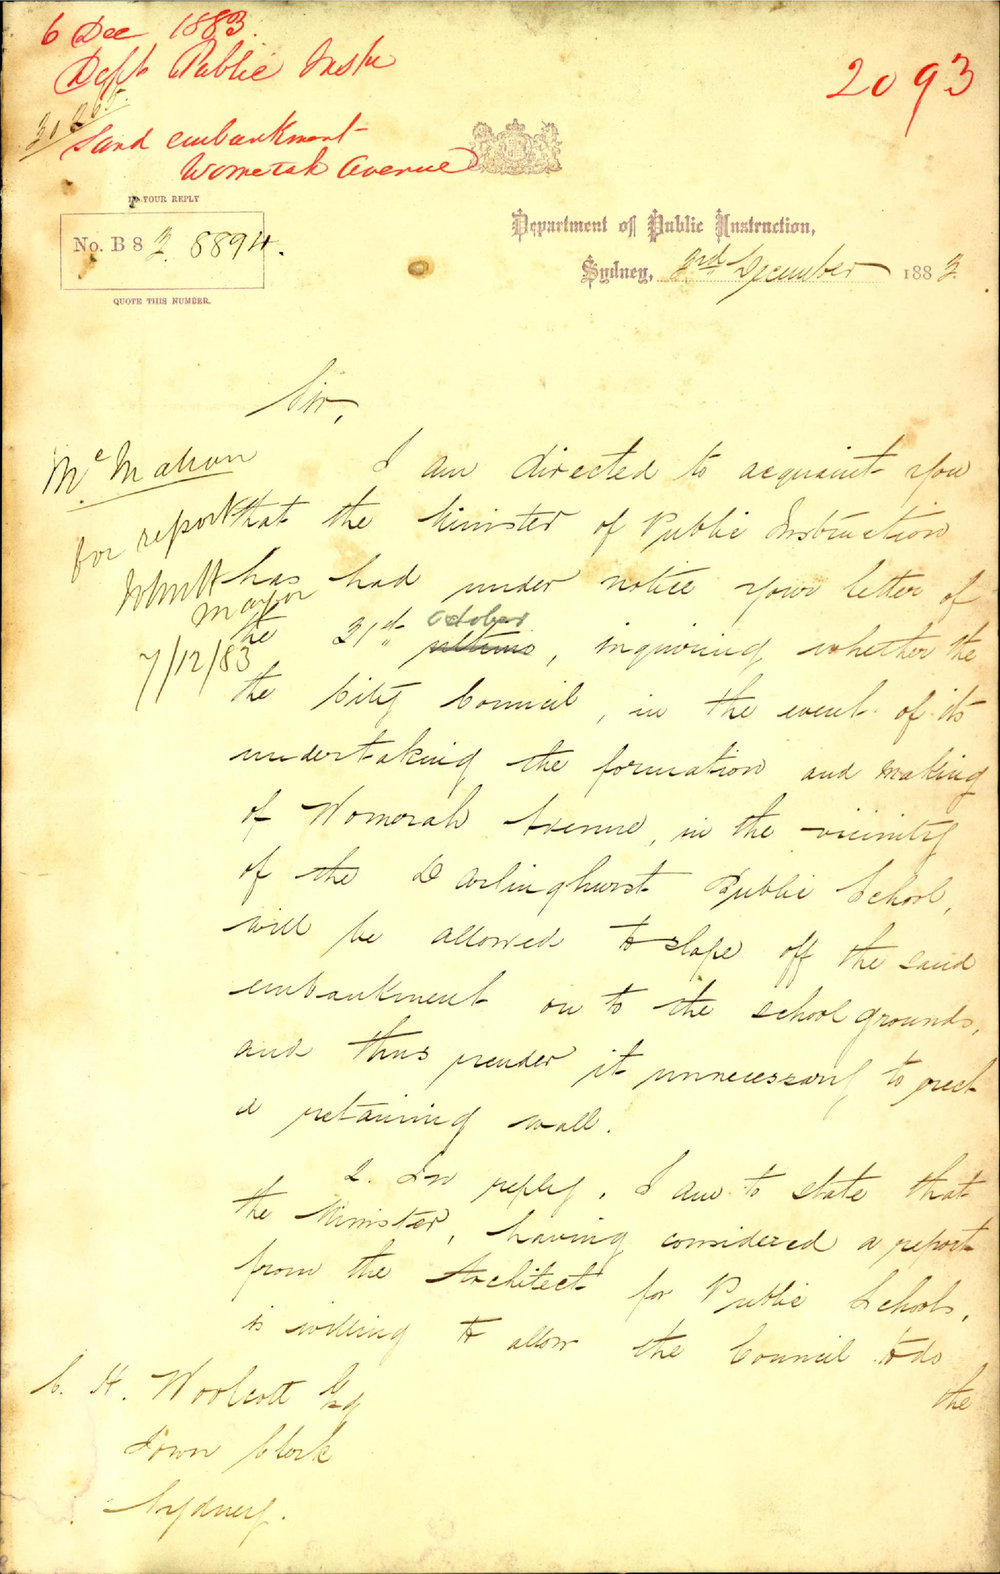 6 Dec 1883.
Dept Public Instn
2093
Sand embankment
Womerah Avenue
IN YOUR REPLY
No. B 83 8894.
QUOTE THIS NUMBER.
Department of Public Instruction,
Sydney, 3rd December 1883.
Sir,
Mc Mahon
for report
Mayor
7/12/83
I am directed to acquaint you
that the Minister of Public Instruction
has had under notice your letter of
the 31st ultimo October, inquiring whether the
the City Council, in the event of its
undertaking the formation and making
of Womerah Avenue, in the vicinity
of the Darlinghurst Public School,
will be allowed to slope off the sand
embankment on to the school grounds,
and thus render it unnecessary to erect
a retaining wall.
2. In reply, I am to state that
the Minister, having considered a report
from the Architect for Public Schools,
is willing to allow the Council to do
the
C. H. Woolcott Esq
Town Clerk
Sydney.